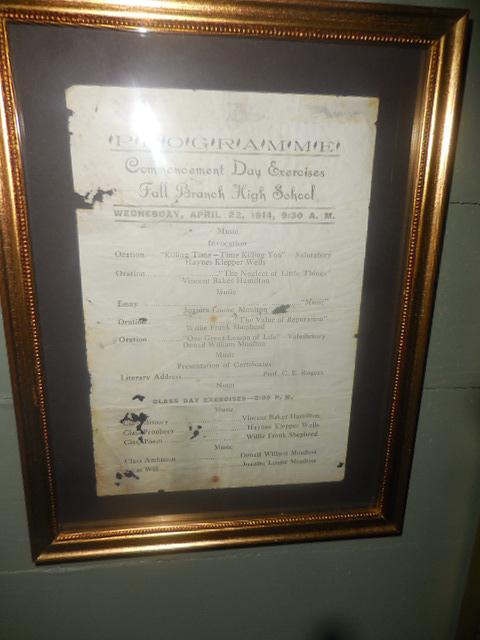 PROGRAMME
Commencement Day Exercises
Fall Branch High School
WEDNESDAY, APRIL 22, 1914, 9:30 A. M.
Music
Invocation
Oration "Killing Time—Time Killing You" Salutatory
Haynes Klepper Wells
Oration "The Neglect of Little Things"
Vincent Baker Hamilton
Music
Essay "Music"
Louise Moulton
Oration "The Value of Reputation"
Willie Frank Shepherd
Oration "One Great Lesson of Life" Valedictory
Denail William Moulton
Music
Presentation of Certificates
Literary Address Prof. C. E. Rogers
Noon
CLASS DAY EXERCISES—2:00 P. M.
Music
Class History Vincent Baker Hamilton
Class Prophecy Haynes Klepper Wells
Class Poem Willie Frank Shepherd
Music
Class Ambition Denail William Moulton
Class Will Louise Moulton